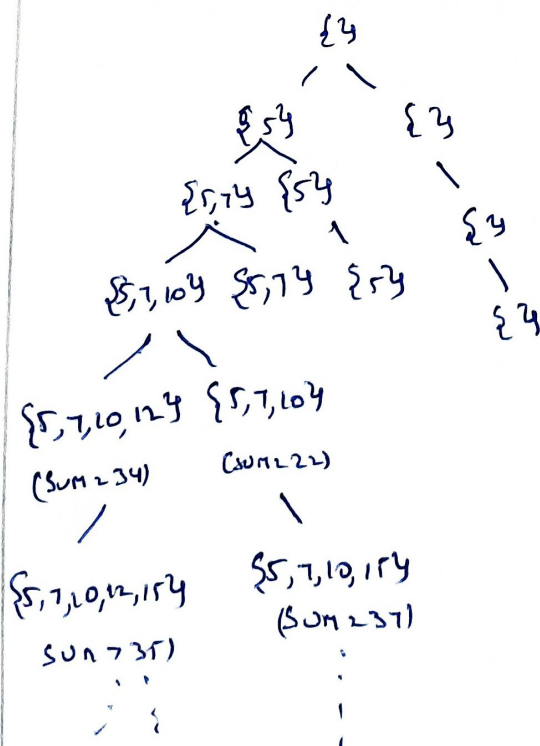 {}
{5} { }
{5,7} {5} { }
{5,7,10} {5,7} {5} { }
{5,7,10,12} {5,7,10}
(SUM = 34) (SUM = 22)
{5,7,10,12,15} {5,7,10,15}
SUM > 35) (SUM = 37)